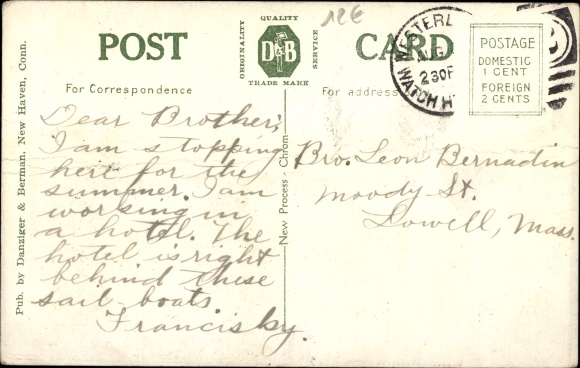 12€
QUALITY
ORIGINALITY
SERVICE
D&B
TRADE MARK
POST CARD
For Correspondence
For address
WESTERL
AUG
2 30P
WATCH H
POSTAGE
DOMESTIC
1 CENT
FOREIGN
2 CENTS
Pub. by Danziger & Berman, New Haven, Conn.
New Process - Chrom
Dear Brother;
I am stopping
here for the
summer. I am
working in
a hotel. The
hotel is right
behind these
sail-boats
Bro. Leon Bernadin
Moody St.
Lowell, Mass.